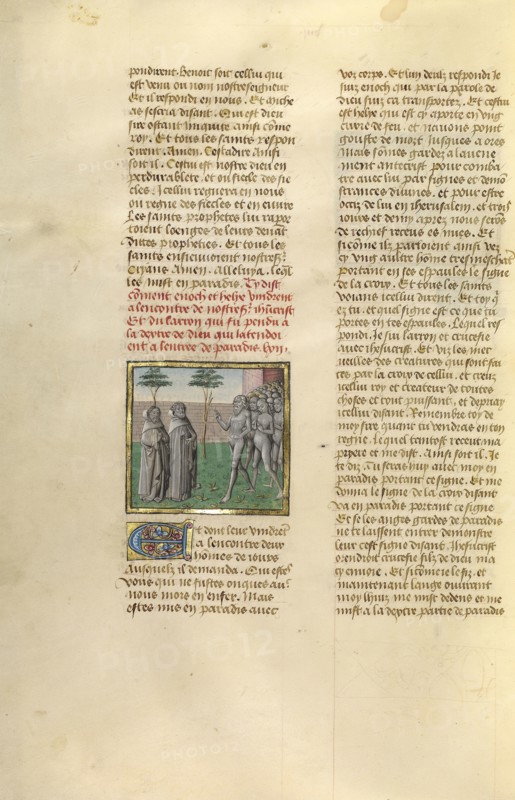 pondirent. Benoit soit cellui qui
est venu ou nom nostreseigneur
Et il respondi en nous. Et anthe
as sescria disant. Qui est dieu
sire ostant iniquite ainsi come
roy. Et tous les saints respon
dirent. Amen. Cestadire Ainsi
soit il. Cestui est nostre dieu en
perdurablete. et ou siecle des sie
cles. Icellui regnera en nous
ou regne des siecles et en oultre
Les saints prophetes lui rappor
toient loenges de leurs deuāt
dittes propheties. Et tous les
saints ensieuuoient nostresr̄
Crians Amen. Alleluya. Lesq̄l
les mist en paradis. Cy dist
cōment enoch et helye vindrent
a lencontre de nostresr̄ ihūcrist
Et du larron qui fu pendu a
la dextre de dieu qui latendoi
ent a lentree de paradis. lvii.
Et dont leur vindrēt
a lencontre deux
hōmes de iours
Ausquelz il demanda. Qui estes
vous qui ne fustes onques auec
nous mors en enfer. Mais
estes mis en paradis auec
voz corps. Et lun deulz respondi Je
suis enoch qui par la parole de
dieu fuz ca transportez. Et cestui
est helye qui est cy aporte en ung
curre de feu. et nauons point
gouste de mort. Jusques a ores
Mais sōmes gardez a laduene
ment antecrist pour comba
tre avec lui par signes et demō
strances diuines. et pour estre
occiz de lui en iherusalem. et trois
iours et demy aprez nous serōs
de rechief receus es nues. Et
sicōme ilz parloient ainsi vez
cy ung aultre hōme tresmeschāt
portant en ses espaules le signe
de la croix. Et tous les saints
voians icellui dirent. Et toy q̄
es tu. et quel signe est ce que tu
portes en tes espaules. Lequel res
pondi. Je sui larron et crucefie
auec ihesucrist. Et viz les mer
ueilles des creatures qui sont fai
tes par la croix de cellui. et creuz
icellui roy et createur de toutes
choses et tout puissant. et depriay
icellui disant. Remembre toy de
moy sire quant tu vendras en ton
regne. Lequel tantost receut ma
pryere et me dist. Ainsi soit il. Je
te diz. Tu seras huy auec moy en
paradis portant ce signe. Et me
donna le signe de la croix disant
Va en paradis portant ce signe
Et se les anges gardes de paradis
ne te laissent entrer demonstre
leur cest signe disant. Jhesucrist
orendroit crucefie filz de dieu ma
cy enuoie. Et sicōme ie le fiz. et
maintenant lange ouurant
moy lhuiz me mist dedens et me
mist a la dextre partie de paradis
PHOTO12